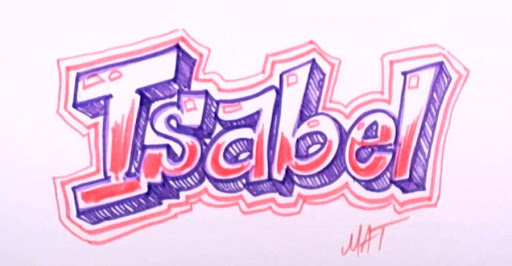 Isabel
MAT